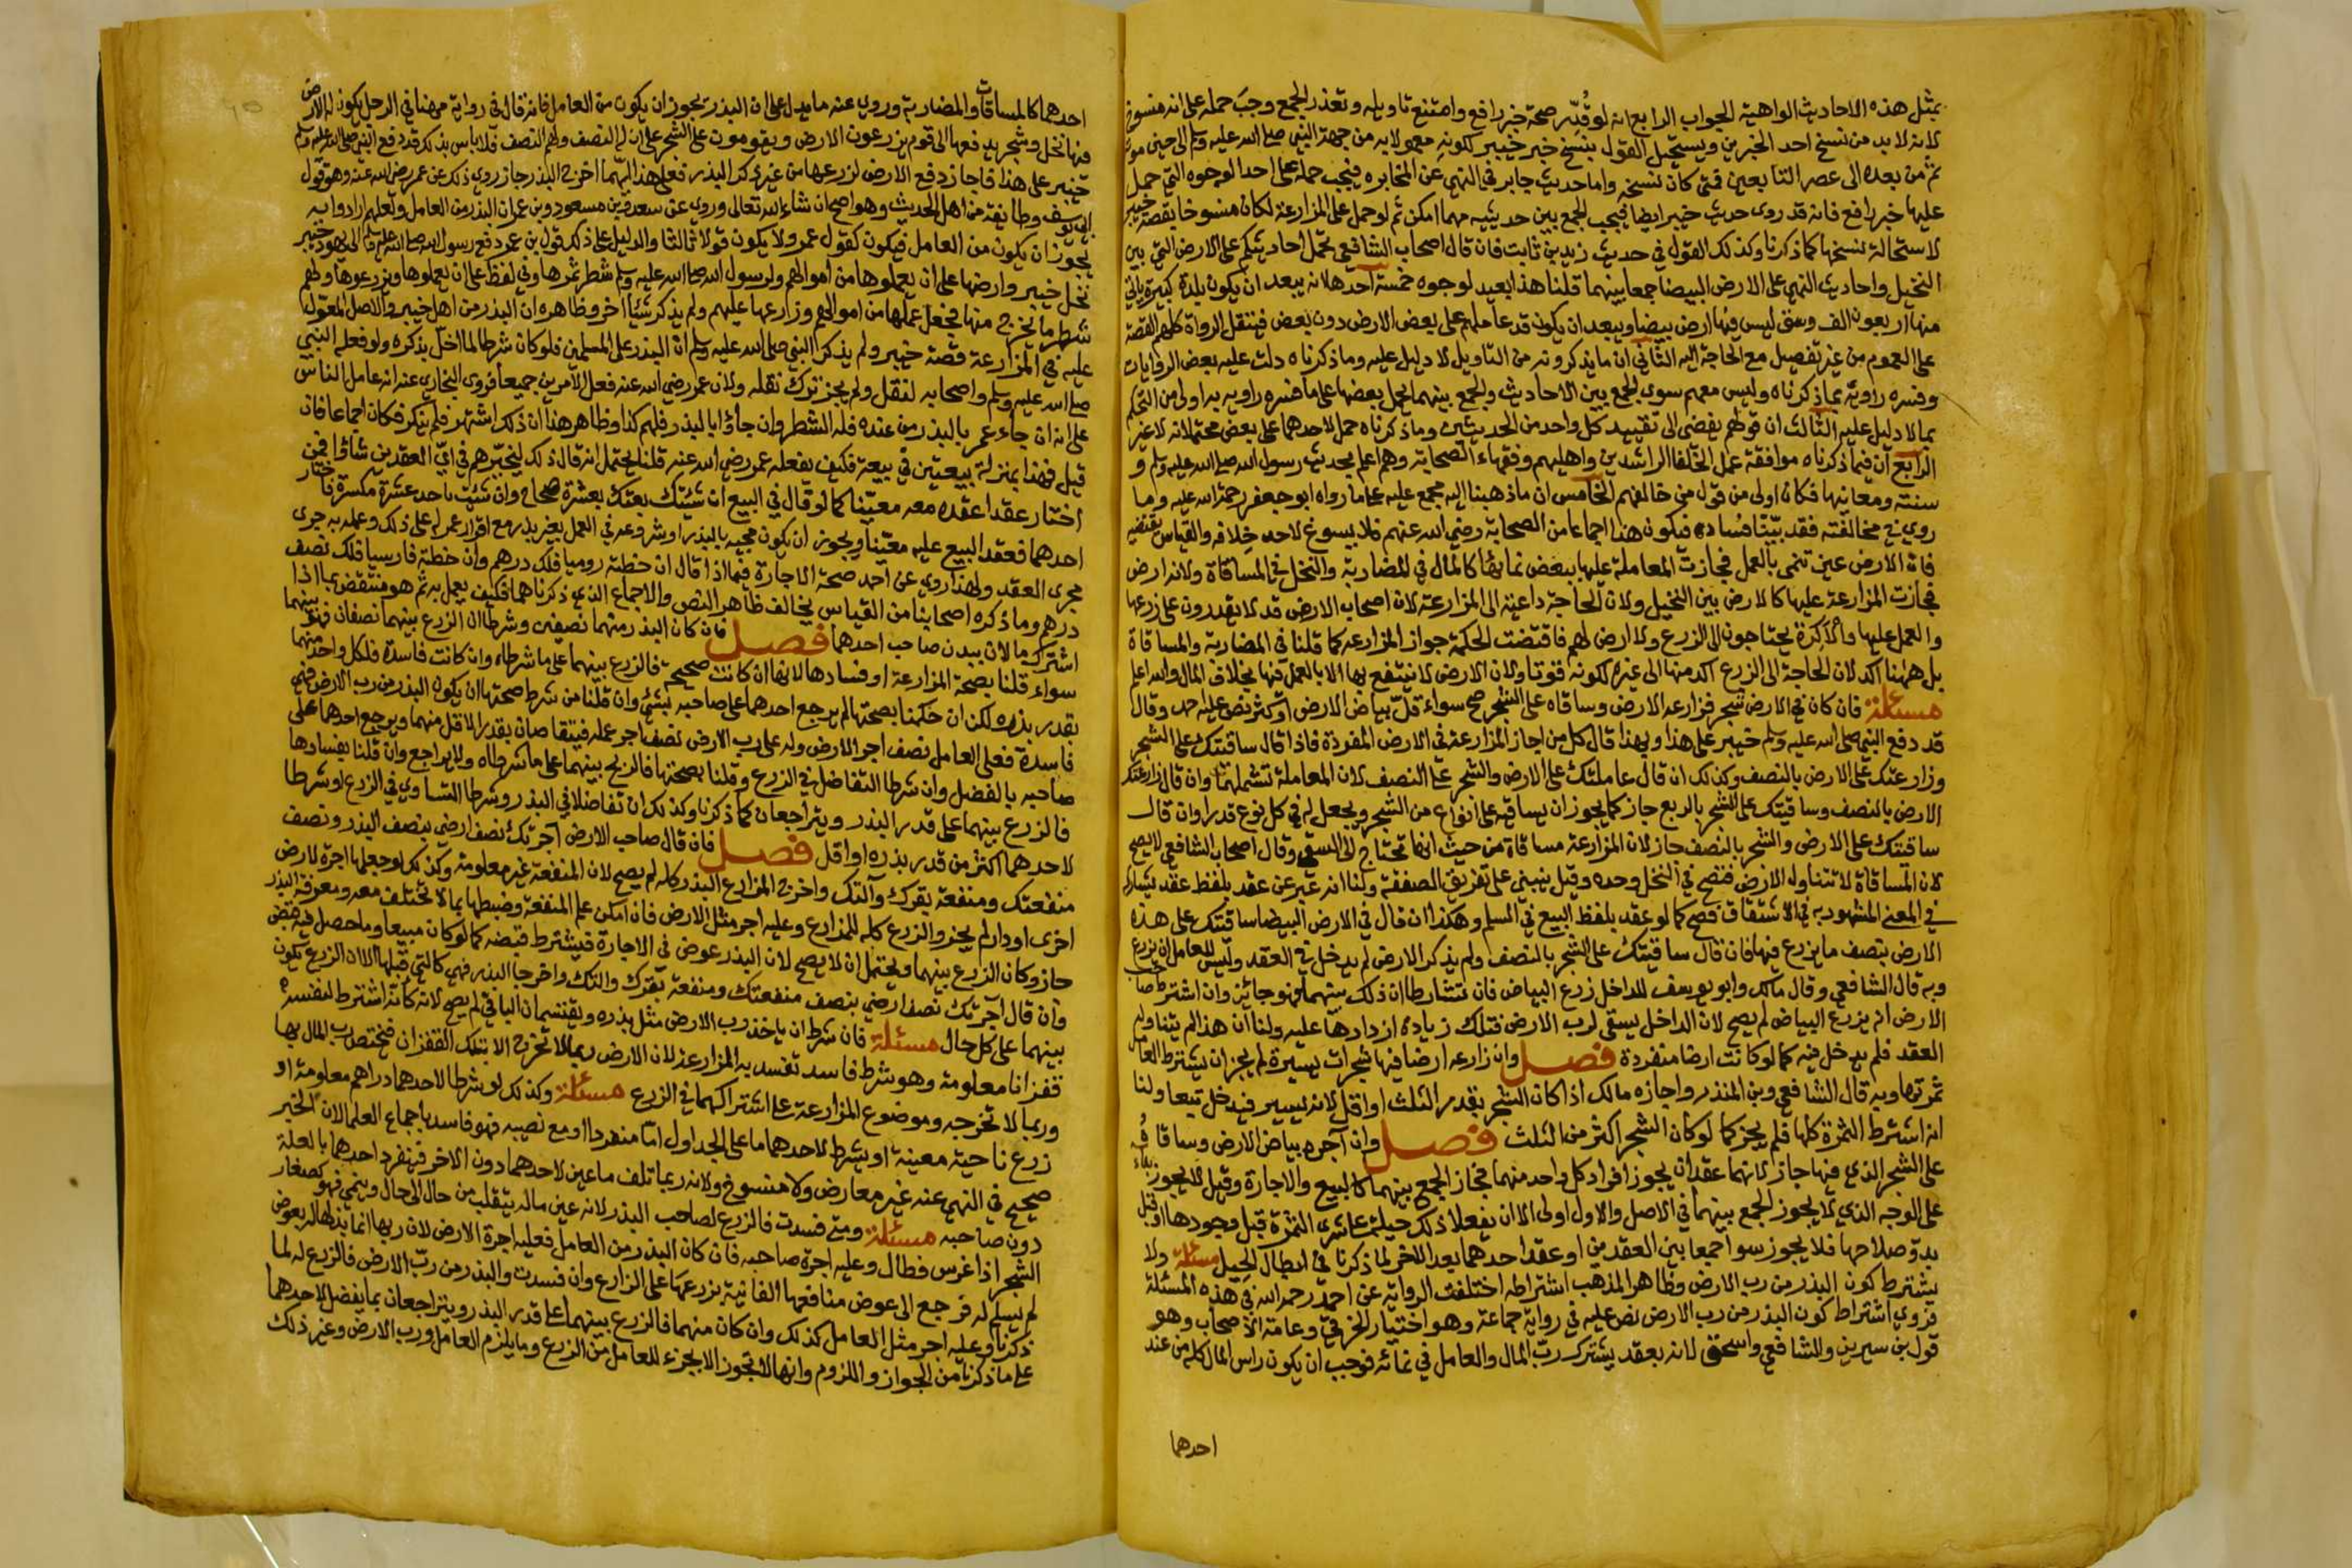 بمثل هذه الاحاديث الواهية الجواب الرابع انه لو قُدِّر صحة خبر رافع وامتنع تاويله وتعذر الجمع وجب حمله على انه منسوخ
لانه لا بد من نسخ احد الخبرين ويستحيل القول بنسخ خبر خيبر لكونه معمولا به من جهة النبي صلى الله عليه وسلم الى حين موته
ثم من بعده الى عصر التابعين فمتى كان نسخه واما حديث جابر في النهي عن المخابره فيجب حمله على احد الوجوه التي حمل
عليها خبر رافع فانه قد روى حديث خيبر ايضا فيجب الجمع بين حديثيه مهما امكن ثم لو حمل على المزارعة لكان منسوخا بقصة خيبر
لاستحالة نسخها كما ذكرنا وكذلك القول في حديث زيد بن ثابت فان قال اصحاب الشافعي تحمل احاديثكم على الارض التي بين
النخيل واحاديث النهي على الارض البيضا جمعا بينهما قلنا هذا بعيد لوجوه خمسة احدها انه يبعد ان يكون بلدة كبيرة ياتي
منها اربعون الف وسق ليس فيها ارض بيضا ويبعد ان يكون قد عاملهم على بعض الارض دون بعض فينقل الرواة كلهم القصة
على العموم من غير تفصيل مع الحاجة اليه الثاني ان ما يذكرونه من التاويل لا دليل عليه وما ذكرناه دلت عليه بعض الروايات
وفسره راويه بما ذكرناه وليس معهم سوى الجمع بين الاحاديث والجمع بينهما بحمل بعضها على ما فسره راويه به اولى من التحكم
بما لا دليل عليه الثالث ان قولهم يفضى الى تقييد كل واحد من الحديثين وما ذكرناه حمل لاحدهما على بعض محتملاته لا غير
الرابع ان فيما ذكرناه موافقة عمل الخلفا الراشدين واهليهم وفقهاء الصحابة وهم اعلم بحديث رسول الله صلى الله عليه وسلم و
سنته ومعانيها فكان اولى من قول من خالفهم الخامس ان ما ذهبنا اليه مجمع عليه على ما رواه ابو جعفر رحمة الله عليه وما
روي في مخالفته فقد بيّنا فساده فيكون هذا اجماعا من الصحابة رضي الله عنهم فلا يسوغ لاحد خلافه والقياس يقتضيه
فان الارض عين تنمى بالعمل فجازت المعاملة عليها ببعض نمائها كالمال في المضاربة والنخل في المساقاة ولانه ارض
فجازت المزارعة عليها كالارض بين النخيل ولان الحاجة داعية الى المزارعة لان اصحاب الارض قد لا يقدرون على زرعها
والعمل عليها والاكرة يحتاجون الى الزرع ولا ارض لهم فاقتضت الحكمة جواز المزارعة كما قلنا في المضاربة والمساقاة
بل ههنا اكد لان الحاجة الى الزرع اكد منها الى غيره لكونه قوتا ولان الارض لا ينتفع بها الا بالعمل فيها بخلاف المال والله اعلم
مسئلة فان كان في الارض شجر فزارعه الارض وساقاه على الشجر صح سواء قل بياض الارض او كثر نص عليه احمد وقال
قد دفع النبي صلى الله عليه وسلم خيبر على هذا وبهذا قال كل من اجاز المزارعة في الارض المفردة فاذا قال ساقيتك على الشجر
وزارعتك على الارض بالنصف وكذلك ان قال عاملتك على الارض والشجر على النصف لان المعاملة تشملهما وان قال زارعتك
الارض بالنصف وساقيتك على الشجر بالربع جاز كما يجوز ان يساقيه على انواع من الشجر ويجعل له في كل نوع قدرا وان قال
ساقيتك على الارض والشجر بالنصف جاز لان المزارعة مساقاة من حيث انها تحتاج الى السقي وقال اصحاب الشافعي لا يصح
لان المساقاة لا تتناول الارض فتصح في النخل وحده وقيل ينبني على تفريق الصفقة ولنا انه عبر عن عقد بلفظ عقد يشاركه
في المعنى المشهور به في الاشتقاق فصح كما لو عقد بلفظ البيع في السلم وهكذا ان قال في الارض البيضا ساقيتك على هذه
الارض بنصف ما يزرع فيها فان قال ساقيتك على الشجر بالنصف ولم يذكر الارض لم يدخل في العقد وليس للعامل ان يزرع
وبه قال الشافعي وقال مالك وابو يوسف للداخل زرع البياض فان تشارطا ان ذلك بينهما فهو جائز وان اشترط صاحب
الارض انه يزرع البياض لم يصح لان الداخل يسقي لرب الارض فتلك زيادة ازدادها عليه ولنا ان هذا لم يتناوله
العقد فلم يدخل فيه كما لو كانت ارضا منفردة فصل وان زارعه ارضا فيها شجرات يسيرة لم يجز ان يشترط العامل
ثمرتها وبه قال الشافعي وبن المنذر واجازه مالك اذا كان الشجر بقدر الثلث او اقل لانه يسير فيدخل تبعا ولنا
انه اشترط الثمرة كلها فلم يجز كما لو كان الشجر اكثر من الثلث فصل وان آجره بياض الارض وساقاه
على الشجر الذي فيها جاز لانهما عقدان يجوز افراد كل واحد منهما فجاز الجمع بينهما كالبيع والاجارة وقيل لا يجوز بناء
على الوجه الذي لا يجوز الجمع بينهما في الاصل والاول اولى الا ان يفعلا ذلك حيلة على شرى الثمرة قبل وجودها او قبل
بدو صلاحها فلا يجوز سوا جمعا بين العقدين او عقدا احدهما بعد الاخر لما ذكرنا في ابطال الحيل مسئلة ولا
يشترط كون البذر من رب الارض وظاهر المذهب اشتراطه اختلفت الرواية عن احمد رحمه الله في هذه المسئلة
فروي اشتراط كون البذر من رب الارض نص عليه في رواية جماعة وهو اختيار الخرقي وعامة الاصحاب وهو
قول بن سيرين والشافعي واسحق لانه بعقد يشترك رب المال والعامل في نمائه فوجب ان يكون راس المال كله من عند
احدهما
احدهما كالمساقات والمضاربة وروي عنه ما يدل على ان البذر يجوز ان يكون من العامل فانه قال في رواية مهنا في الرجل يكون له الارض
فيها نخل وشجر يدفعها الى قوم يزرعون الارض ويقومون على الشجر على ان له النصف ولهم النصف فلا باس بذلك قد دفع النبي صلى الله عليه وسلم
خيبر على هذا فاجاز دفع الارض لزرعها من غير ذكر البذر فعلى هذا ايهما اخرج البذر جاز روي ذلك عن عمر رضي الله عنه وهو قول
ابي يوسف وطائفة من اهل الحديث وهو اصح ان شاء الله تعالى وروي عن سعد وبن مسعود وبن عمران البذر من العامل ولعلهم ارادوا به
يجوز ان يكون من العامل فيكون كقول عمر ولا يكون قولا ثالثا والدليل على ذلك قول بن عمر دفع رسول الله صلى الله عليه وسلم الى يهود خيبر
نخل خيبر وارضها على ان يعملوها من اموالهم ولرسول الله صلى الله عليه وسلم شطر ثمرها وفي لفظ على ان يعملوها ويزرعوها ولهم
شطر ما يخرج منها فجعل عملها من اموالهم وزارعها عليهم ولم يذكر شيئا اخر وظاهره ان البذر من اهل خيبر والاصل المعول
عليه في المزارعة قصة خيبر ولم يذكر النبي صلى الله عليه وسلم ان البذر على المسلمين فلو كان شرطا لما اخل بذكره ولو فعله النبي
صلى الله عليه وسلم واصحابه لنقل ولم يجز ترك نقله ولان عمر رضي الله عنه فعل الامرين جميعا فروى البخاري عنه انه عامل الناس
على انه ان جاء عمر بالبذر من عنده فله الشطر وان جاؤا بالبذر فلهم كذا وظاهر هذا ان ذلك اشتهر فلم ينكر فكان اجماعا فان
قيل فهذا بمنزلة بيعتين في بيعة فكيف يفعله عمر رضي الله عنه قلنا يحتمل انه قال ذلك ليخيّرهم في ايّ العقدين شاؤا فمن
اختار عقدا عقده معه معيّنا كما لو قال في البيع ان شئت بعتك بعشرة صحاح وان شئت باحد عشرة مكسرة فاختار
احدهما فعقد البيع عليه معيّنا ويجوز ان يكون مجيه بالبذر او شروعه في العمل بغير بذر مع اقرار عمر له على ذلك وعمله به جرى
مجرى العقد ولهذا روي عن احمد صحة الاجارة فيما اذا قال ان خطته روميا فلك درهم وان خطته فارسيا فلك نصف
درهم وما ذكره اصحابنا من القياس يخالف ظاهر النص والاجماع الذي ذكرناهما فكيف يعمل به ثم هو منتقض بما اذا
اشترك مالان ببدن صاحب احدهما فصل فان كان البذر منهما نصفين وشرطا ان الزرع بينهما نصفان فهو بينهما
سواء قلنا بصحة المزارعة او فسادها لانها ان كانت صحيحة فالزرع بينهما على ما شرطاه وان كانت فاسدة فلكل واحد منهما
بقدر بذره لكن ان حكمنا بصحتها لم يرجع احدهما على صاحبه بشئ وان قلنا من شرط صحتها ان يكون البذر من رب الارض فهي
فاسدة فعلى العامل نصف اجر الارض وله على رب الارض نصف اجر عمله فيتقاصان بقدر الاقل منهما ويرجع احدهما على
صاحبه بالفضل وان شرطا التفاضل في الزرع وقلنا بصحتها فالزرع بينهما على ما شرطاه ولا تراجع وان قلنا بفسادها
فالزرع بينهما على قدر البذر ويتراجعان كما ذكرنا وكذلك ان تفاضلا في البذر وشرطا التساوي في الزرع او شرطا
لاحدهما اكثر من قدر بذره او اقل فصل فان قال صاحب الارض آجرتك نصف ارضي بنصف البذر ونصف
منفعتك ومنفعة بقرك وآلتك واخرج المزارع البذر كله لم يصح لان المنفعة غير معلومة وكذلك لو جعلها اجرة لارض
اخرى او دار لم يجز والزرع كله للمزارع وعليه اجر مثل الارض فان امكن علم المنفعة وضبطها بما لا تختلف معه ومعرفة البذر
جاز وكان الزرع بينهما ويحتمل ان لا يصح لان البذر عوض في الاجارة فيشترط قبضه كما لو كان مبيعا وما حصل فيه قبض
وان قال آجرتك نصف ارضي بنصف منفعتك ومنفعة بقرك والتك واخرجا البذر فهي كالتي قبلها الا ان الزرع يكون
بينهما على كل حال مسئلة فان شرط ان ياخذ رب الارض مثل بذره ويقتسمان الباقي لم يصح لانه كانه اشترط لنفسه
قفزانا معلومة وهو شرط فاسد تفسد به المزارعة لان الارض ربما لا تخرج الا تلك القفزان فيختص رب المال بها
وربما لا تخرجه وموضوع المزارعة على اشتراكهما في الزرع مسئلة وكذلك لو شرطا لاحدهما دراهم معلومة او
زرع ناحية معينة او يشرط لاحدهما ما على الجداول اما منفردا او مع نصيبه فهو فاسد باجماع العلما لان الخبر
صحيح في النهي عنه غير معارض ولا منسوخ ولانه ربما تلف ما عين لاحدهما دون الاخر فينفرد احدهما بالغلة
دون صاحبه مسئلة ومتى فسدت فالزرع لصاحب البذر لانه عين ماله يتقلب من حال الى حال وينمي فهو كصغار
الشجر اذا غرس فطال وعليه اجرة صاحبه فان كان البذر من العامل فعليه اجرة الارض لان ربها انما بذلها له بعوض
لم يسلم له فرجع الى عوض منافعها الفائتة بزرعها على الزارع وان فسدت والبذر من رب الارض فالزرع له لما
ذكرنا وعليه اجر مثل العامل كذلك وان كان منهما فالزرع بينهما على قدر البذر ويتراجعان بما يفضل لاحدهما
على ما ذكرنا من الجواز واللزوم وانها لا تجوز الا بجزء للعامل من الزرع وما يلزم العامل ورب الارض وغير ذلك